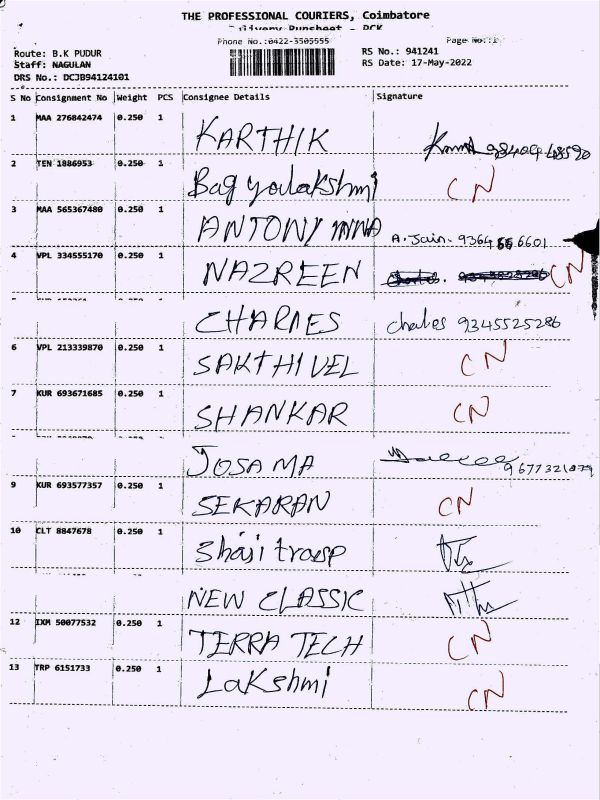 THE PROFESSIONAL COURIERS, Coimbatore
Delivery Runsheet - PCK
Phone No.:0422-3505555 Page No.:1
Route: B.K PUDUR RS No.: 941241
Staff: NAGULAN RS Date: 17-May-2022
DRS No.: DCJB94124101
S No Consignment No Weight PCS Consignee Details Signature
1 MAA 276842474 0.250 1 KARTHIK
2 TEN 1886953 0.250 1 Bagyalakshmi CN
3 MAA 565367480 0.250 1 ANTONY A. Jain. 9364 66 6601
4 VPL 334555170 0.250 1 NAZREEN CN
CHARLES Charles 9345525286
6 VPL 213339870 0.250 1 SAKTHIVEL CN
7 KUR 693671685 0.250 1 SHANKAR CN
JOSAMA
9 KUR 693577357 0.250 1 SEKARAN CN
10 CLT 8847678 0.250 1 Shaji transp
NEW CLASSIC
12 IXM 50077532 0.250 1 TERRA TECH CN
13 TRP 6151733 0.250 1 Lakshmi CN